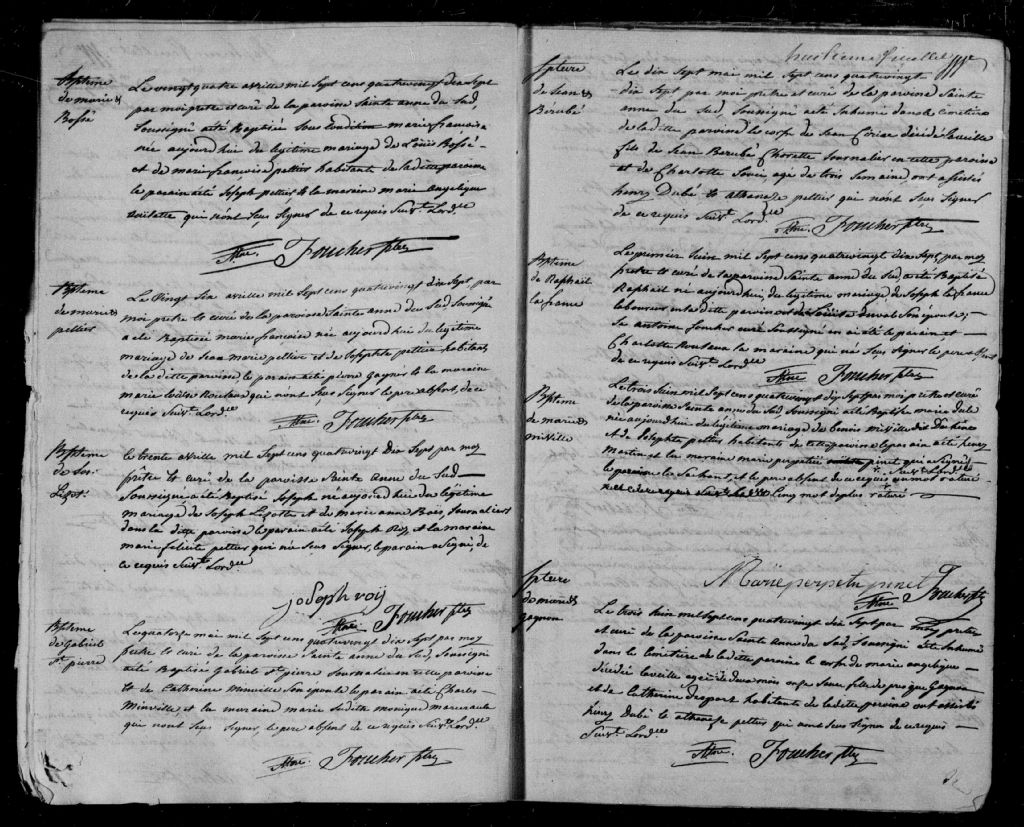 Bpteme
de marie
Bossé
Le vingt quatre avrille mil Sept cens quatrevingt dix Sept
par moi pretre et curé de la paroisse Sainte anne du Sud,
Soussigné a été Baptisée Sous condition marie francoise
née aujourdhui du legitime mariage de Louis Bossé
et de marie francoise peltier habitants de la ditte paroisse
le parain a été Joseph peltier & la maraine marie angelique
qui n'ont Seus Signer de ce requis Suivt. Lordce
Atne. Foucher ptre
Bpteme
de marie
peltier
Le Vingt Six avrille mil Sept cens quatrevingt dix Sept par
moi pretre et curé de la paroisse Sainte anne du Sud Soussigné
a été Baptisée marie francoise née aujourdhui du legitime
mariage de Jean marie peltier et de Josephte peltier habitants
de la ditte paroisse le parain a été pierre Gagnon & la maraine
marie qui n'ont Seus Signer le pere absent, de ce
requis Suivt. Lordce
Atne. Foucher ptre
Bpteme
de Jos.
Lizot.
le trente avrille mil Sept cens quatrevingt Dix Sept par moy
prêtre & curé de la paroisse Sainte Anne du Sud
Soussigné a été Baptisé Joseph né aujourdhui du legitime
mariage de Joseph Lizotte et de marie anne Bois, Journaliers
dans la ditte paroisse le parain a été Joseph Roy et la maraine
marie felicité peltier qui n'a Seus Signer, le parain a Signé, de
ce requis Suivt. Lordce
joseph roÿ
Atne. Foucher ptre
Bpteme
de Gabriel
St. pierre
Le quatorze mai mil Sept cens quatrevingt dix Sept par moy
pretre et curé de la paroisse Sainte anne du Sud, Soussigné
a été Baptisé Gabriel St. pierre Journalier en cette paroisse
& de Catherine Miville Son epouse le parain a été Charles
Minville et la maraine marie Judith monique
qui n'ont Seus Signer, le pere absent de ce requis Suivt. Lordce
Atne. Foucher ptre
feuillet
Spture
de Jean
Bérubé
Le dix Sept mai mil Sept cens quatrevingt
dix Sept par moi pretre et curé de la paroisse Sainte
anne du Sud, Soussigné a été Inhumé dans le Cimetiere
de la ditte paroisse le corps de Jean décédé la veille
fils de Jean Berubé Journalier en cette paroisse
et de Charlotte agé de trois Semaines, ont assisté
henry Dubé & athanase peltier qui n'ont Seus Signer
de ce requis Suivt. Lordce
Atne. Foucher ptre
Bpteme
de Raphail
la france
Le premier Juin mil Sept cens quatrevingt dix Sept, par moy
prêtre & curé de la paroisse Sainte Anne du Sud a été Baptisé
Raphail né aujourdhui, du legitime mariage de Joseph la france
laboureur en la ditte paroisse et de Louise Duval Son épouse;
Le antoine foucher curé Soussigné en a été le parain et
Charlotte la maraine qui n'a Seus Signer le pere
de ce requis Suivt. Lordce
Atne Foucher ptre
Bpteme
de marie
miville
Le trois Juin mil Sept cens quatrevingt dix Sept par moi pretre et curé
de la paroisse Sainte anne du Sud Soussigné a été Baptisée marie
née aujourdhui du legitime mariage de Benois miville dit Dechêne
et de Josephte peltier habitants de cette paroisse le parain a été henry
Martin et la maraine marie perpetue pinet qui a Signé
le parain et le pere absent de ce requis un mot raturé
Cinq mots de plus raturé
Marie perpetu pinet
Atne Foucher ptre
Spture
de marie
gagnon
Le trois Juin mil Sept cens quatrevingt dix Sept par moy pretre
et curé de la paroisse Sainte Anne du Sud, Soussigné a été Inhumé
dans le Cemetiere de la ditte paroisse le corps de marie angelique
décédée la veille agée de deux mois onze Jours fille de Gagnon
et de Catherine habitants de la ditte paroisse ont assisté
henry Dubé & athanase peltier qui n'ont Seus Signer de ce requis
Suivt. Lordce
Atne. Foucher ptre